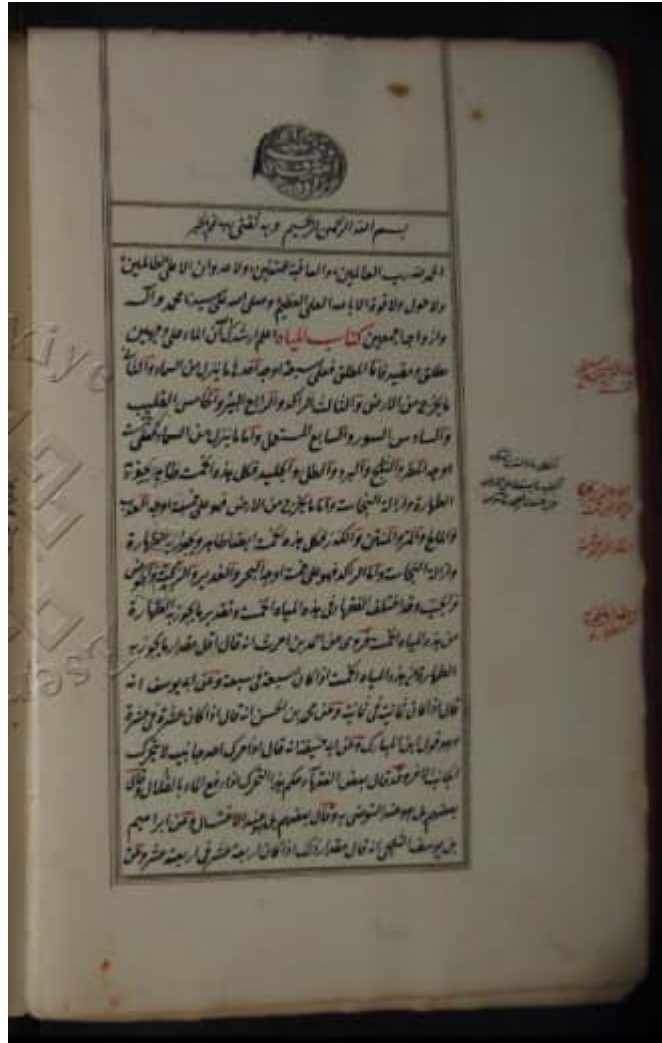 بسم الله الرحمن الرحيم وبه ثقتي
الحمد لله رب العالمين والعاقبة للمتقين ولا عدوان الا على الظالمين
ولا حول ولا قوة الا بالله العلي العظيم وصلى الله على سيدنا محمد وآله
وازواجه اجمعين كتاب المياه اعلم ارشدك الله ان الماء على وجهين
مطلق ومقيد فاما المطلق فعلى سبعة اوجه احدها ما ينزل من السماء والثاني
ما يخرج من الارض والثالث الراكد والرابع البئر والخامس القليب
والسادس السور والسابع المستعمل واما ما ينزل من السماء فعلى خمسة
اوجه المطر والثلج والبرد والطل والجليد فكل هذه الخمسة طاهر يجوز به
الطهارة وازالة النجاسة واما ما يخرج من الارض فهو على خمسة اوجه العذب
والمالح والمر والمنتن والكدر فكل هذه الخمسة ايضا طاهر ويجوز به الطهارة
وازالة النجاسة واما الراكد فهو على خمسة اوجه البحر والغدير والركية والحوض
والجب وقد اختلف الفقهاء في هذه المياه الخمسة وتقدير ما يجوز به الطهارة
من هذه المياه الخمسة فروي عن احمد بن الحرث انه قال اقل مقدار ما يجوز به
الطهارة من هذه المياه الخمسة اذا كان سبعة في سبعة وعن ابي يوسف انه
قال اذا كان ثمانية في ثمانية وعن محمد بن الحسن انه قال اذا كان عشرة في عشرة
وهو قول ابن المبارك وعن ابي حنيفة انه قال اذا حرك احد جانبيه لا يتحرك
الجانب الاخر وقد قال بعض الفقهاء حكم هذا التحرك اذا رفع الماء بالقلال وقال
بعضهم بل هو عند التوضي به وقال بعضهم بل عند الاغتسال وعن ابراهيم
بن يوسف البلخي انه قال مقدار ذلك اذا كان اربعة عشر في اربعة عشر وعن